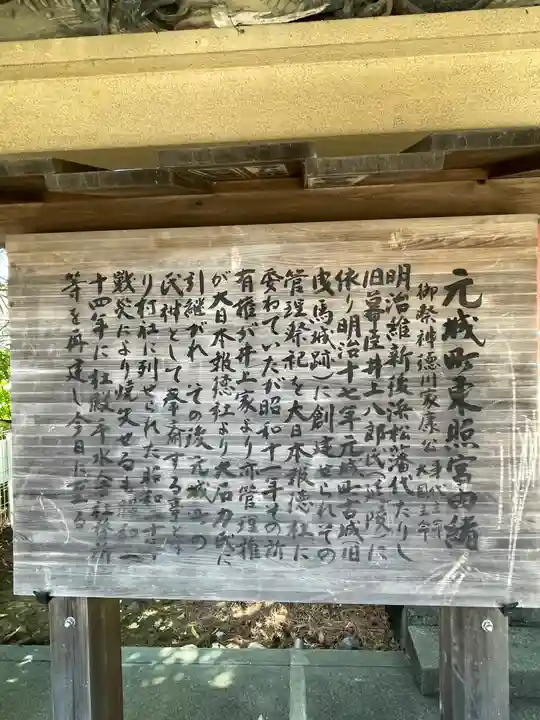 元城町東照宮由緒
御祭神徳川家康公 事代主命 大国主命
明治維新後浜松藩代たりし
旧幕臣井上八郎氏(延陵)に
依り明治十七年元城町古城(旧
曳馬城跡)に創建せられその
管理祭祀を大日本報徳社に
委ねていたが昭和十一年その所
有権が井上家より亦管理権
が大日本報徳社より大石力氏に
引継がれ その後元城町の
氏神として奉斎する事とな
り村社に列せられた 昭和二十年
戦災により焼失せるも昭和三
十四年に社殿手水舎社務所
等を再建し今日に至る